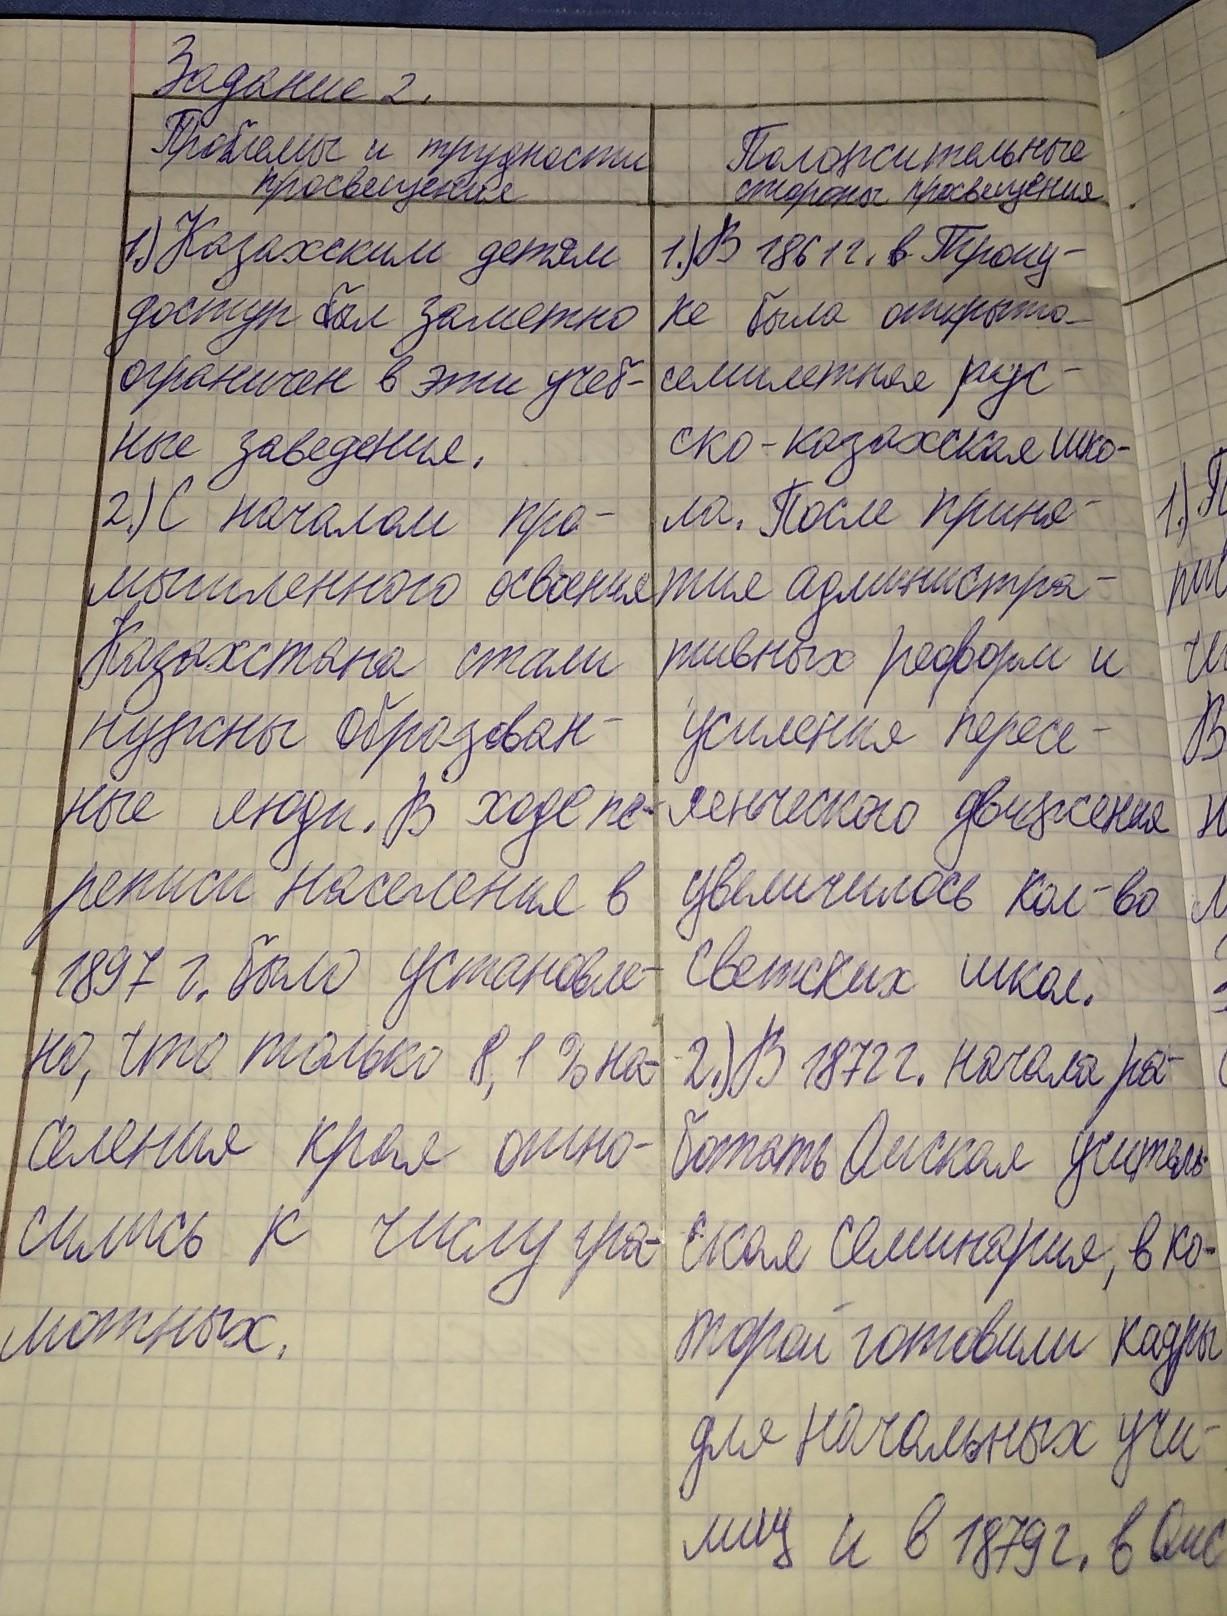 Задание 2.
Проблемы и трудности
просвещения
1.) Казахским детям
доступ был заметно
ограничен в эти учеб-
ные заведения.
2.) С началом про-
мышленного освоения
Казахстана стали
нужны образован-
ные люди. В ходе пе-
реписи населения в
1897 г. было установле-
но, что только 8,1 % на-
селения края отно-
сились к числу гра-
мотных.
Положительные
стороны просвещения
1.) В 1861 г. в Троиц-
ке была открыта
семилетняя рус-
ско-казахская шко-
ла. После приня-
тия администра-
тивных реформ и
усиления пересе-
ленческого движения
увеличилось кол-во
светских школ.
2.) В 1872 г. начала ра-
ботать Омская учитель-
ская семинария, в ко-
торой готовили кадры
для начальных учи-
лищ и в 1879 г. в Омс